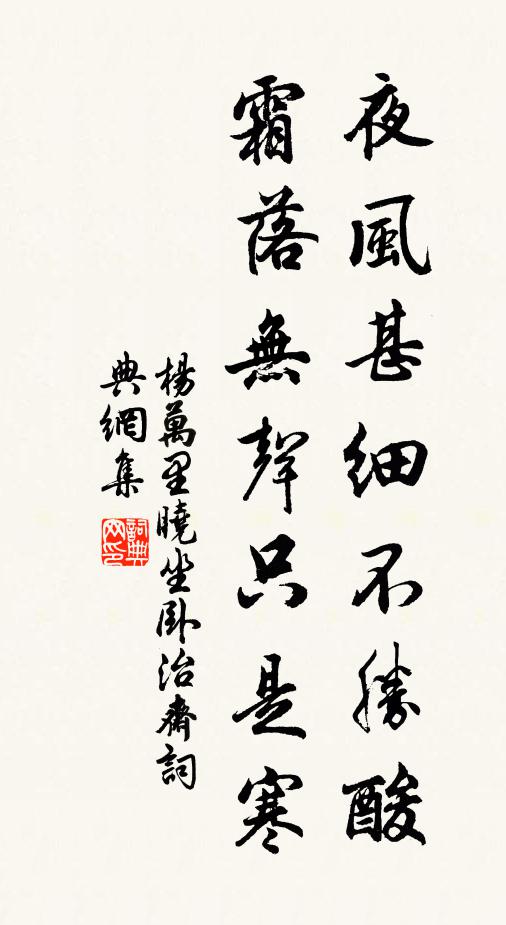 夜風甚細不勝酸
霜落無聲只是寒
楊萬里曉坐卧治齋詞
典網集
詞典網印